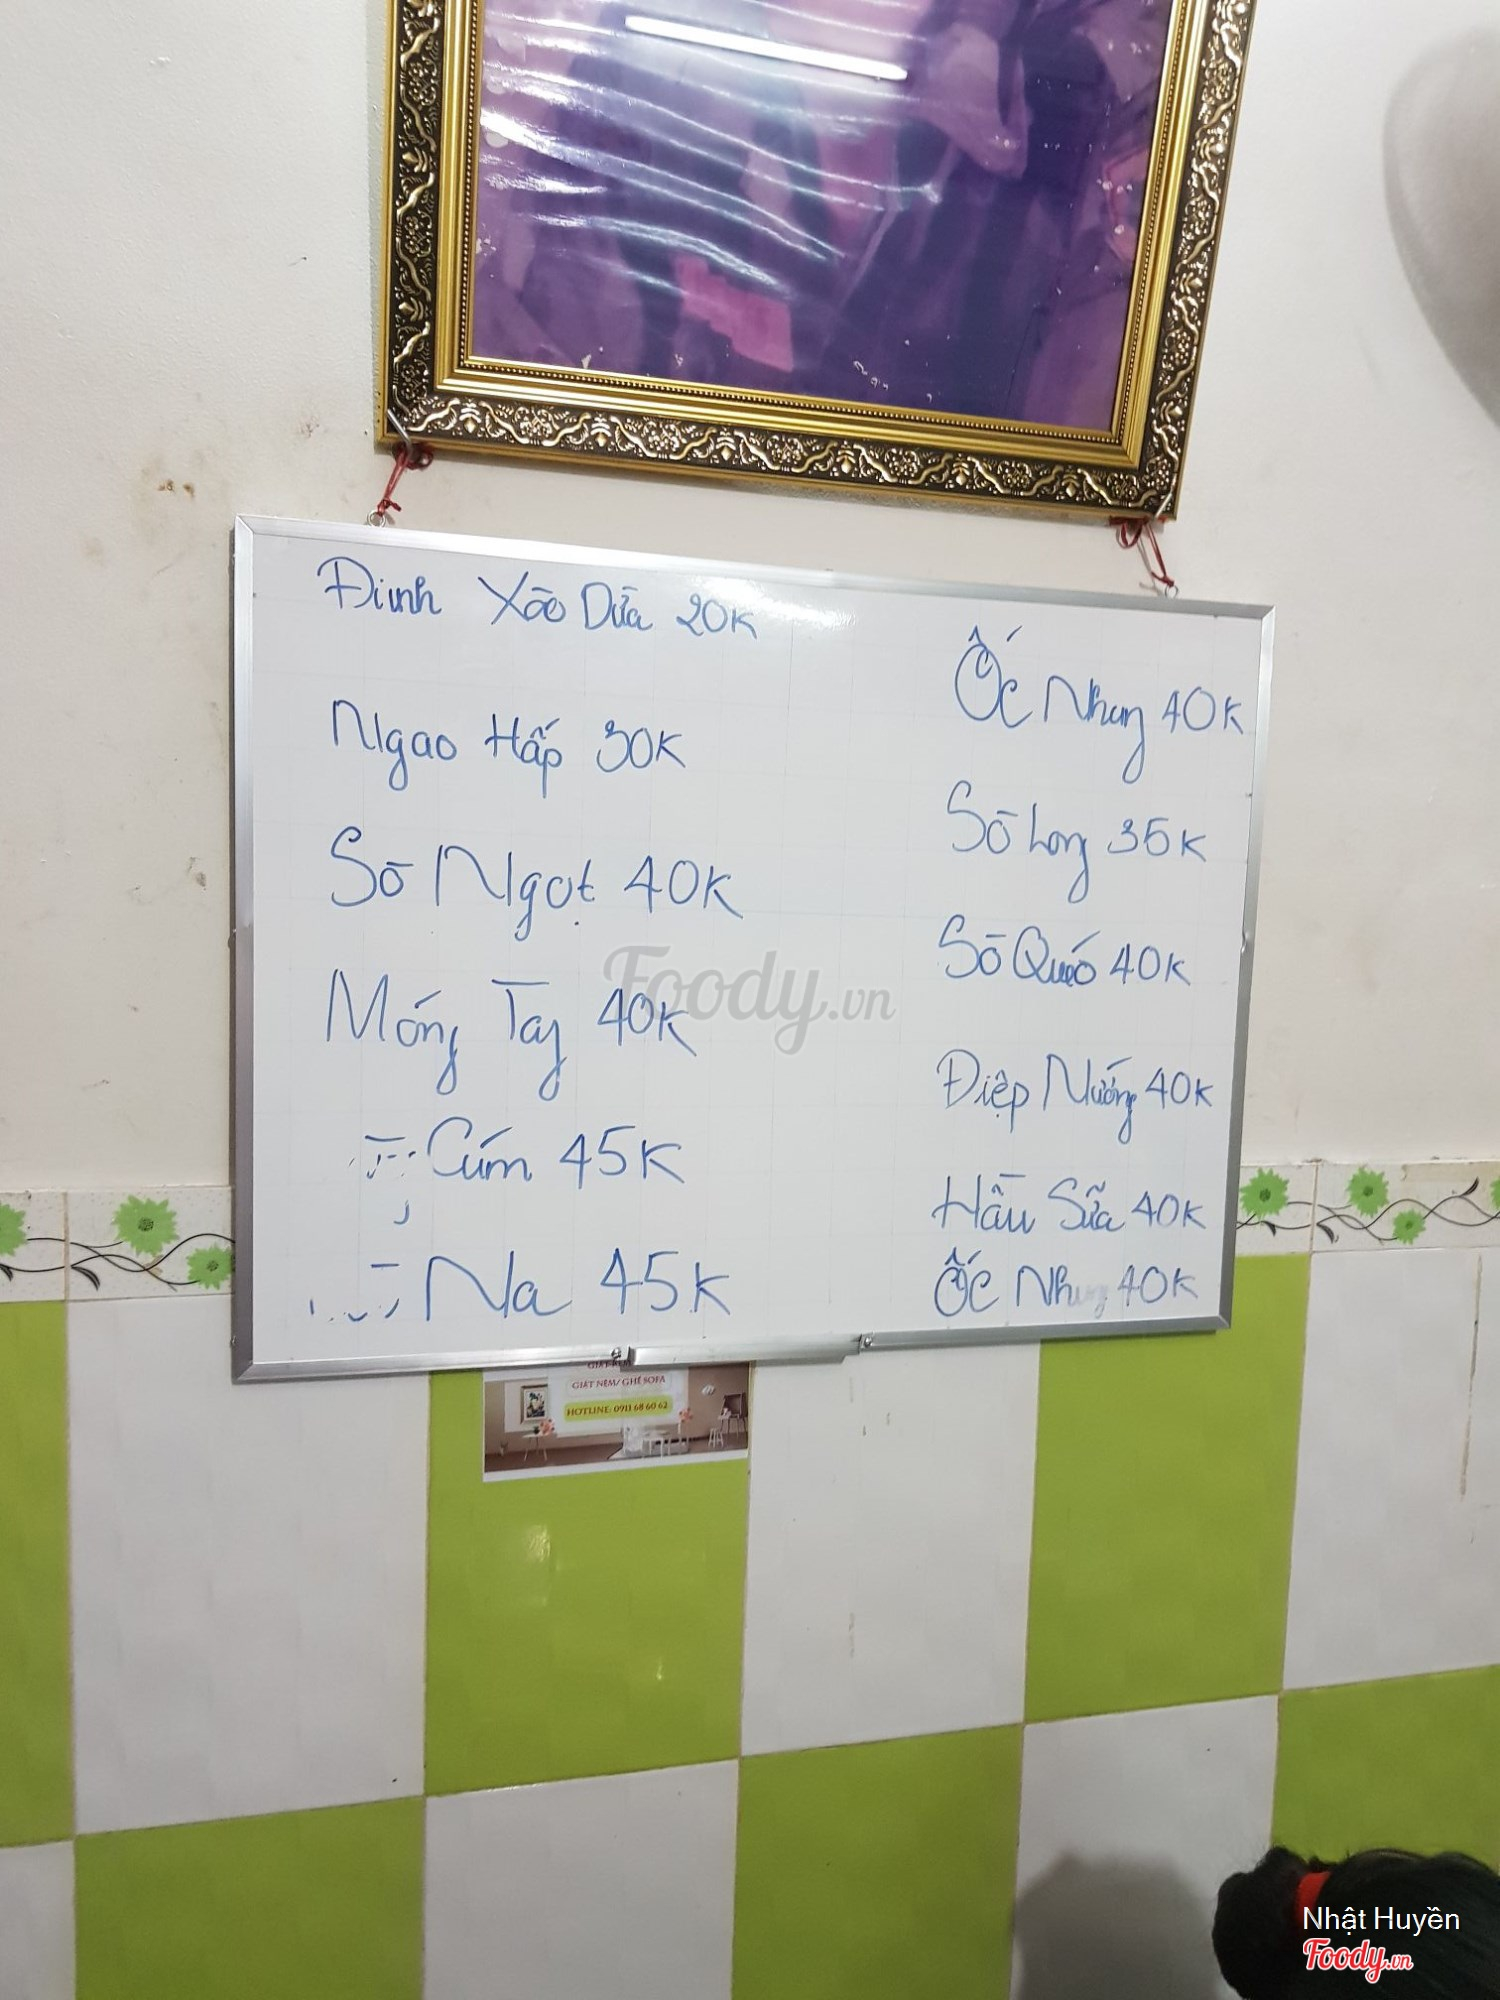 Đinh Xào Dừa 20K
Ngao Hấp 30K
Sò Ngọt 40K
Móng Tay 40K
Cúm 45K
Na 45K
Ốc Nhung 40K
Sò Long 35K
Sò Quéo 40K
Điệp Nướng 40K
Hàu Sữa 40K
Ốc Nhung 40K
Foody.vn
GIẶT NỆM/ GHẾ SOFA
HOTLINE: 0911 68 60 62
Nhật Huyền
Foody.vn